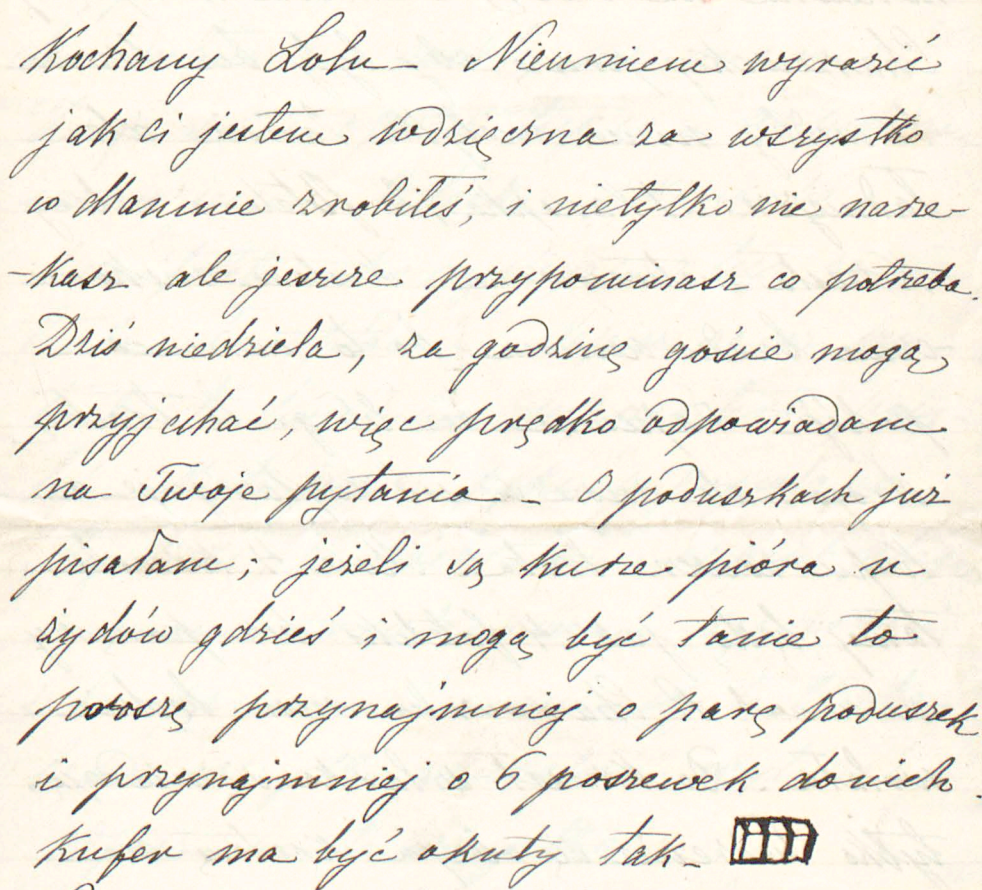 Kochany Lolu – Nieumiem wyrazić
jak ci jestem wdzięczna za wszystko
co dlamnie zrobiłeś, i nietylko nie narze-
-kasz ale jeszcze przypominasz co potrzeba.
Dziś niedziela, za godzinę goście mogą
przyjechać, więc prędko odpowiadam
na Twoje pytania – O poduszkach już
pisałam; jeżeli są kurze pióra u
żydów gdzieś i mogą być tanie to
proszę przynajmniej o parę poduszek
i przynajmniej o 6 poszewek donich.
Kufer ma być okuty tak –